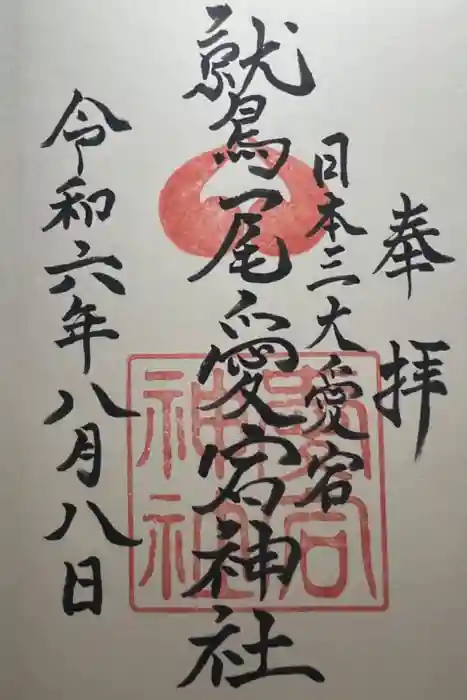 奉拝
日本三大愛宕
鷲尾愛宕神社
令和六年八月八日
愛宕
神社